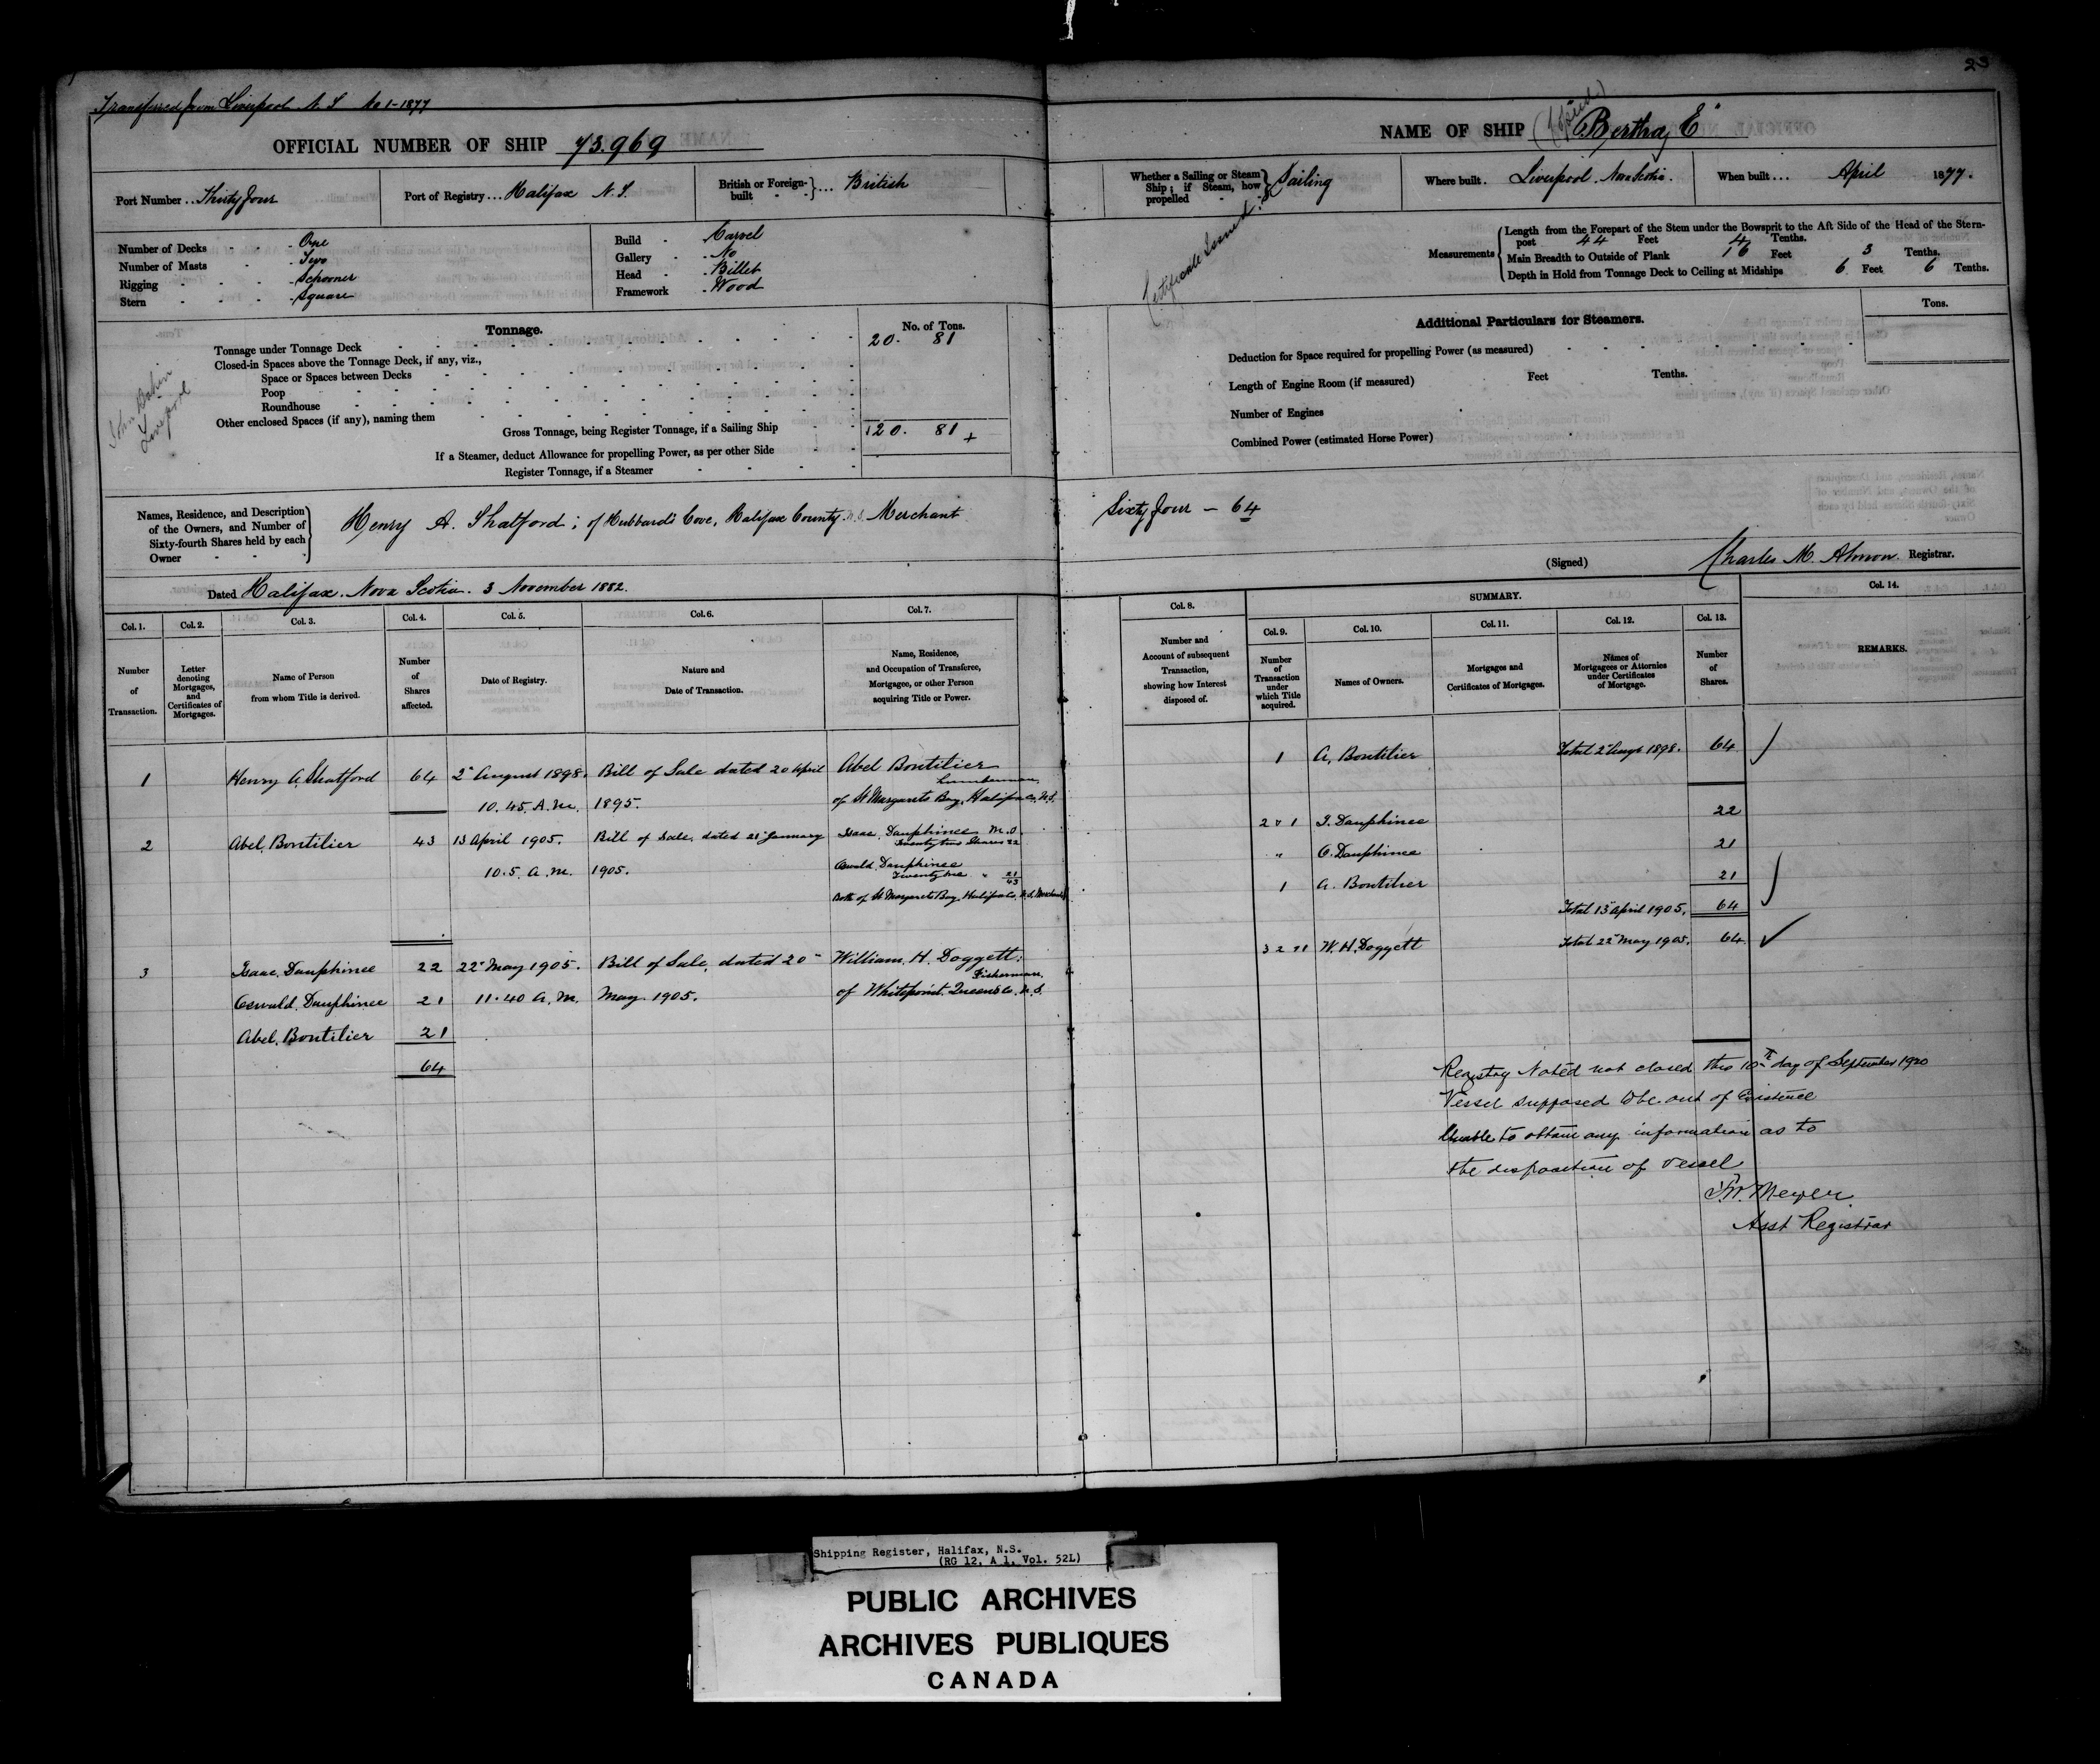 23
Transferred from Liverpool N S No 1-1877
OFFICIAL NUMBER OF SHIP 73.969
NAME OF SHIP "Bertha E"
Port Number .. Thirty four
Port of Registry ... Halifax N.S.
British or Foreign-built } ... British
Whether a Sailing or Steam Ship; if Steam, how propelled } Sailing
Where built . Liverpool. Nova Scotia.
When built ... April 1877.
Number of Decks - One
Number of Masts - Two
Rigging - Schooner
Stern - Square
Build - Carvel
Gallery - No
Head - Billet
Framework - Wood
Certificate Issued.
Measurements
Length from the Forepart of the Stem under the Bowsprit to the Aft Side of the Head of the Stern-
post 44 Feet 4 Tenths.
Main Breadth to Outside of Plank 16 Feet 3 Tenths.
Depth in Hold from Tonnage Deck to Ceiling at Midships 6 Feet 6 Tenths.
Tonnage. No. of Tons.
Tonnage under Tonnage Deck 20. 81
Closed-in Spaces above the Tonnage Deck, if any, viz.,
Space or Spaces between Decks
Poop
Roundhouse
Other enclosed Spaces (if any), naming them
Gross Tonnage, being Register Tonnage, if a Sailing Ship 20. 81
If a Steamer, deduct Allowance for propelling Power, as per other Side
Register Tonnage, if a Steamer
John
Liverpool
Additional Particulars for Steamers. Tons.
Deduction for Space required for propelling Power (as measured)
Length of Engine Room (if measured) Feet Tenths.
Number of Engines
Combined Power (estimated Horse Power)
Names, Residence, and Description
of the Owners, and Number of
Sixty-fourth Shares held by each
Owner
Henry A. Shatford; of Hubbard's Cove, Halifax County N.S. Merchant
Sixty four - 64
Dated Halifax. Nova Scotia. 3 November 1882.
(Signed) Charles M. Almon. Registrar.
Col. 1. Col. 2. Col. 3. Col. 4. Col. 5. Col. 6. Col. 7.
Number of Transaction.
Letter denoting Mortgages, and Certificates of Mortgages.
Name of Person from whom Title is derived.
Number of Shares affected.
Date of Registry.
Nature and Date of Transaction.
Name, Residence, and Occupation of Transferee, Mortgagee, or other Person acquiring Title or Power.
Col. 8. SUMMARY. Col. 14.
Col. 9. Col. 10. Col. 11. Col. 12. Col. 13.
Number and Account of subsequent Transaction, showing how Interest disposed of.
Number of Transaction under which Title acquired.
Names of Owners.
Mortgages and Certificates of Mortgages.
Names of Mortgagees or Attornies under Certificates of Mortgage.
Number of Shares.
REMARKS.
1 Henry A. Shatford 64 2" August 1898. Bill of Sale dated 20 April Abel Boutilier
Lumberman
10.45. A.M. 1895. of St Margarets Bay. Halifax Co. N.S.
2 Abel. Boutilier 43 13 April 1905. Bill of Sale. dated 21" January Isaac. Dauphinee M.O.
Twenty two Shares 22
10.5. A.M. 1905. Oswald. Dauphinee
Twenty one " 21
43
Both of St Margarets Bay. Halifax Co. N.S. Merchants
3 Isaac. Dauphinee 22 22" May 1905. Bill of Sale. dated 20" William. H. Doggett:
Fisherman.
Oswald. Dauphinee 21 11.40 A.M. May. 1905. of Whitepoint. Queens Co. N.S.
Abel. Boutilier 21
64
1 A. Boutilier Total 2" Augt 1898. 64
2 & 1 I. Dauphinee 22
" O. Dauphinee 21
1 A. Boutilier 21
Total 13" April 1905. 64
3 2 & 1 W. H. Doggett Total 22" May 1905. 64
Registry Noted not closed this 10th day of September 1920
Vessel supposed to be out of Existence
Unable to obtain any information as to
the disposition of vessel
Meyer
Asst Registrar
Shipping Register, Halifax, N.S.
(RG 12, A 1, Vol. 52L)
PUBLIC ARCHIVES
ARCHIVES PUBLIQUES
CANADA